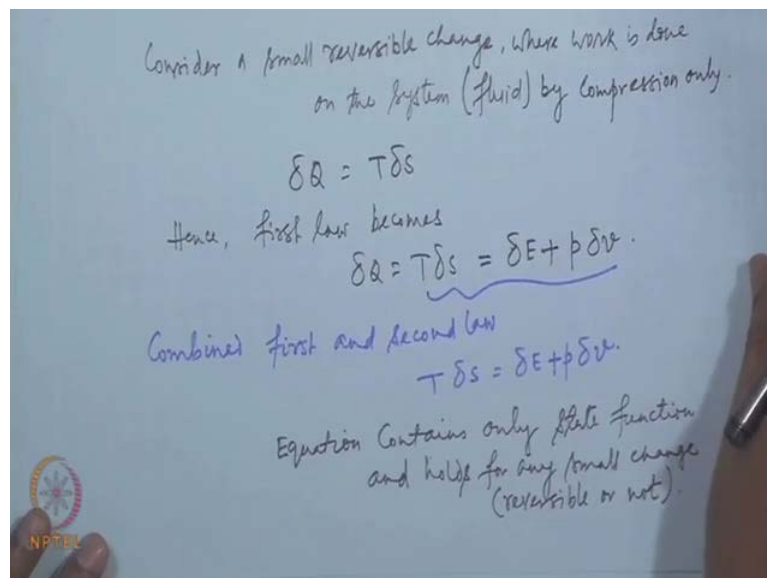 Consider a small reversible change, where work is done
on the system (fluid) by compression only.
δQ = TδS
Hence, first law becomes
δQ = TδS = δE + pδv.
Combined first and second law
TδS = δE + pδv.
Equation contains only state function
and holds for any small change
(reversible or not).
NPTEL